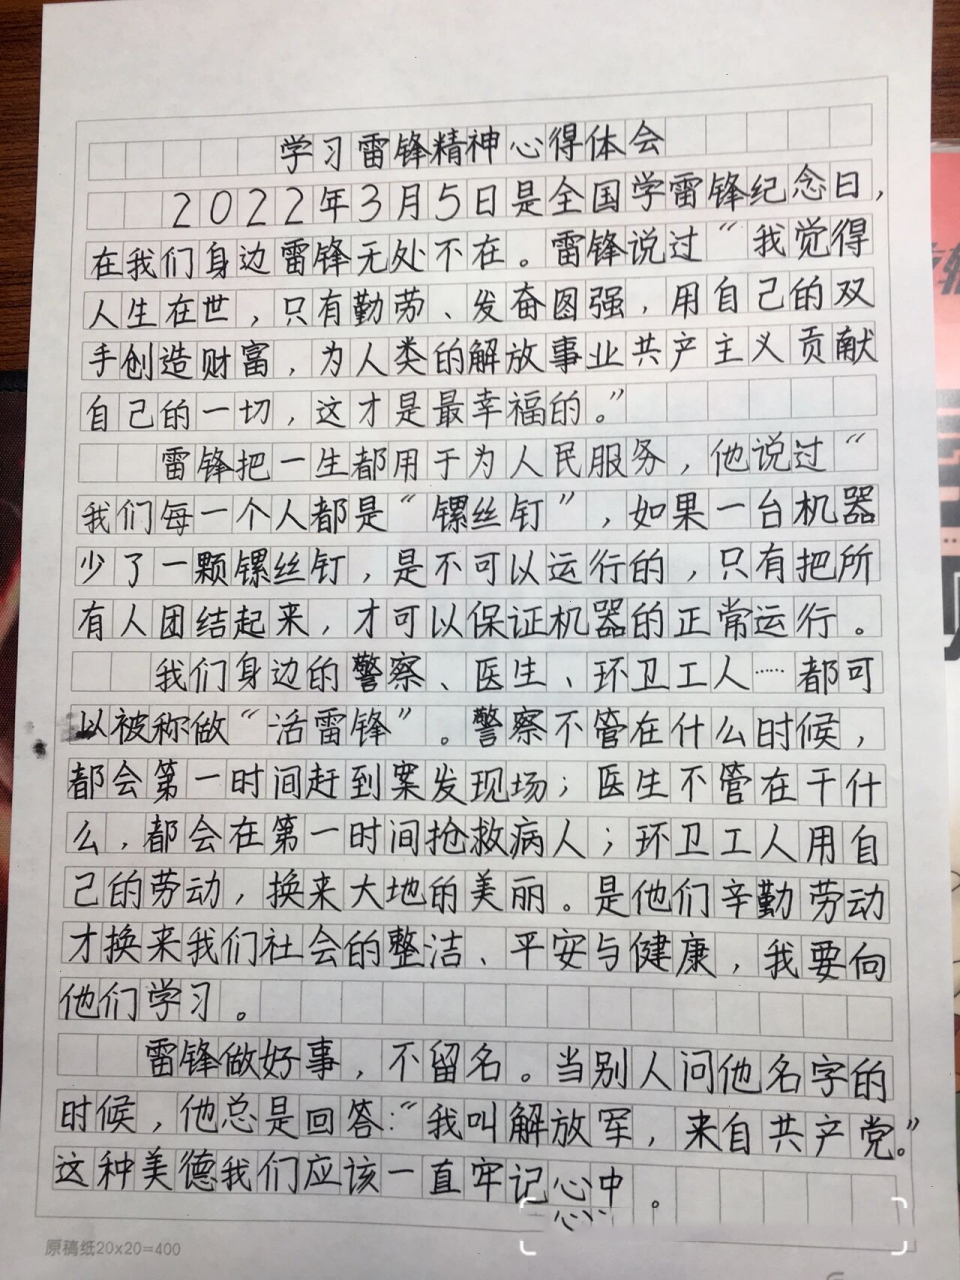 学习雷锋精神心得体会
2022年3月5日是全国学雷锋纪念日，
在我们身边雷锋无处不在。雷锋说过“我觉得
人生在世，只有勤劳、发奋图强，用自己的双
手创造财富，为人类的解放事业共产主义贡献
自己的一切，这才是最幸福的。”
雷锋把一生都用于为人民服务，他说过“
我们每一个人都是“镙丝钉”，如果一台机器
少了一颗镙丝钉，是不可以运行的，只有把所
有人团结起来，才可以保证机器的正常运行。
我们身边的警察、医生、环卫工人……都可
以被称做“活雷锋”。警察不管在什么时候，
都会第一时间赶到案发现场；医生不管在干什
么，都会在第一时间抢救病人；环卫工人用自
己的劳动，换来大地的美丽。是他们辛勤劳动
才换来我们社会的整洁、平安与健康，我要向
他们学习。
雷锋做好事，不留名。当别人问他名字的
时候，他总是回答：“我叫解放军，来自共产党。”
这种美德我们应该一直牢记心中。
原稿纸20x20=400